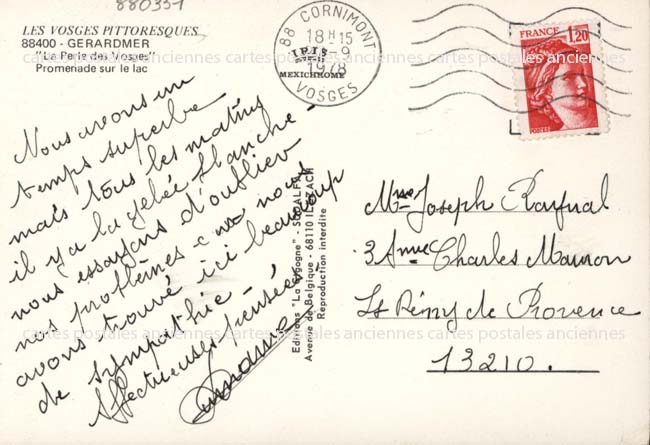 880351
LES VOSGES PITTORESQUES
88400 - GERARDMER
"La Perle des Vosges"
Promenade sur le lac
88 CORNIMONT
18 H 15
-9
1978
VOSGES
IRIS
MEXICHROME
FRANCE
1,20
POSTES
Nous avons un
temps superbe
mais tous les matins
il y a la gelée blanche -
nous essayons d'oublier
nos problèmes - nous
avons trouvé ici beaucoup
de sympathie -
Affectueuses pensées
Editions "La Cigogne" - SODALFA
Avenue de Belgique - 68110 ILLZACH
Reproduction interdite
Mme Joseph Raynal
3 Ame Charles Mauron
St Rémy de Provence
13210.
cartes postales anciennes cartes postales anciennes cartes postales anciennes
cartes postales anciennes cartes postales anciennes cartes postales anciennes